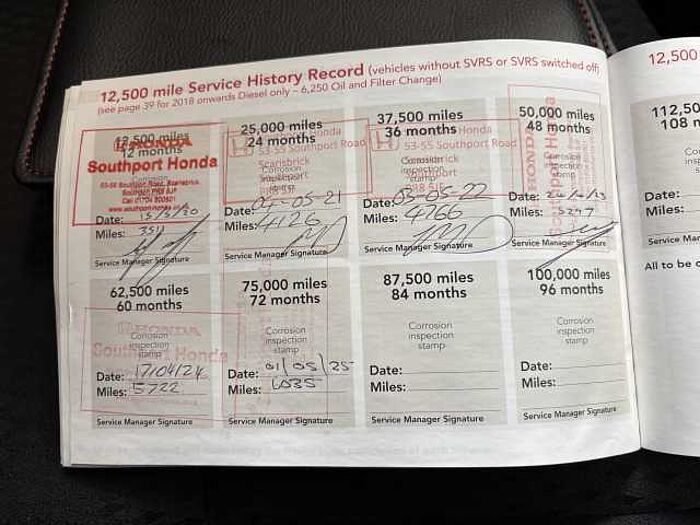 12,500 mile Service History Record (vehicles without SVRS or SVRS switched off)
(see page 39 for 2018 onwards Diesel only – 6,250 Oil and Filter Change)
12,500 miles
12 months
HONDA
Southport Honda
53-55 Southport Road, Scarisbrick,
Call 01704
Date: 15/5/20
Miles: 351
Service Manager Signature
25,000 miles
24 months
Honda
53-55 Southport Road
Scarisbrick
Corrosion
inspection
stamp
Date: 04-05-21
Miles: 4126
Service Manager Signature
37,500 miles
36 months
Southport Honda
53-55 Southport Road
Corrosion
inspection
stamp
Date: 05-05-22
Miles: 4766
Service Manager Signature
50,000 miles
48 months
HONDA
Southport Honda
Corrosion
inspection
stamp
Date:
Miles: 5297
Service Manager Signature
62,500 miles
60 months
Corrosion
inspection
stamp
HONDA
Southport Honda
Date: 17/04/24
Miles: 5722
Service Manager Signature
75,000 miles
72 months
Corrosion
inspection
stamp
Date: 01/05/25
Miles: 6035
Service Manager Signature
87,500 miles
84 months
Corrosion
inspection
stamp
Date:
Miles:
Service Manager Signature
100,000 miles
96 months
Corrosion
inspection
stamp
Date:
Miles:
Service Manager Signature
12,500
112,50
108 m
Date:
Miles:
Service Man
All to be c